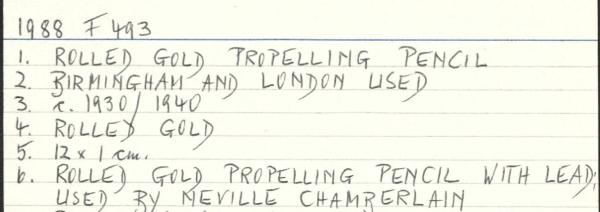 1988 F 493
1. ROLLED GOLD PROPELLING PENCIL
2. BIRMINGHAM AND LONDON USED
3. c. 1930/1940
4. ROLLED GOLD
5. 12 x 1 cm.
6. ROLLED GOLD PROPELLING PENCIL WITH LEAD;
USED BY NEVILLE CHAMBERLAIN